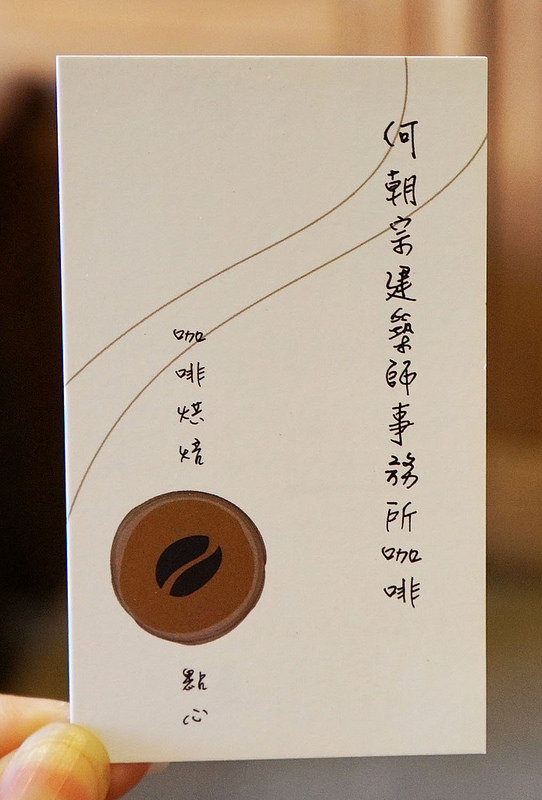 何朝宗建築師事務所咖啡
咖啡烘焙
點心